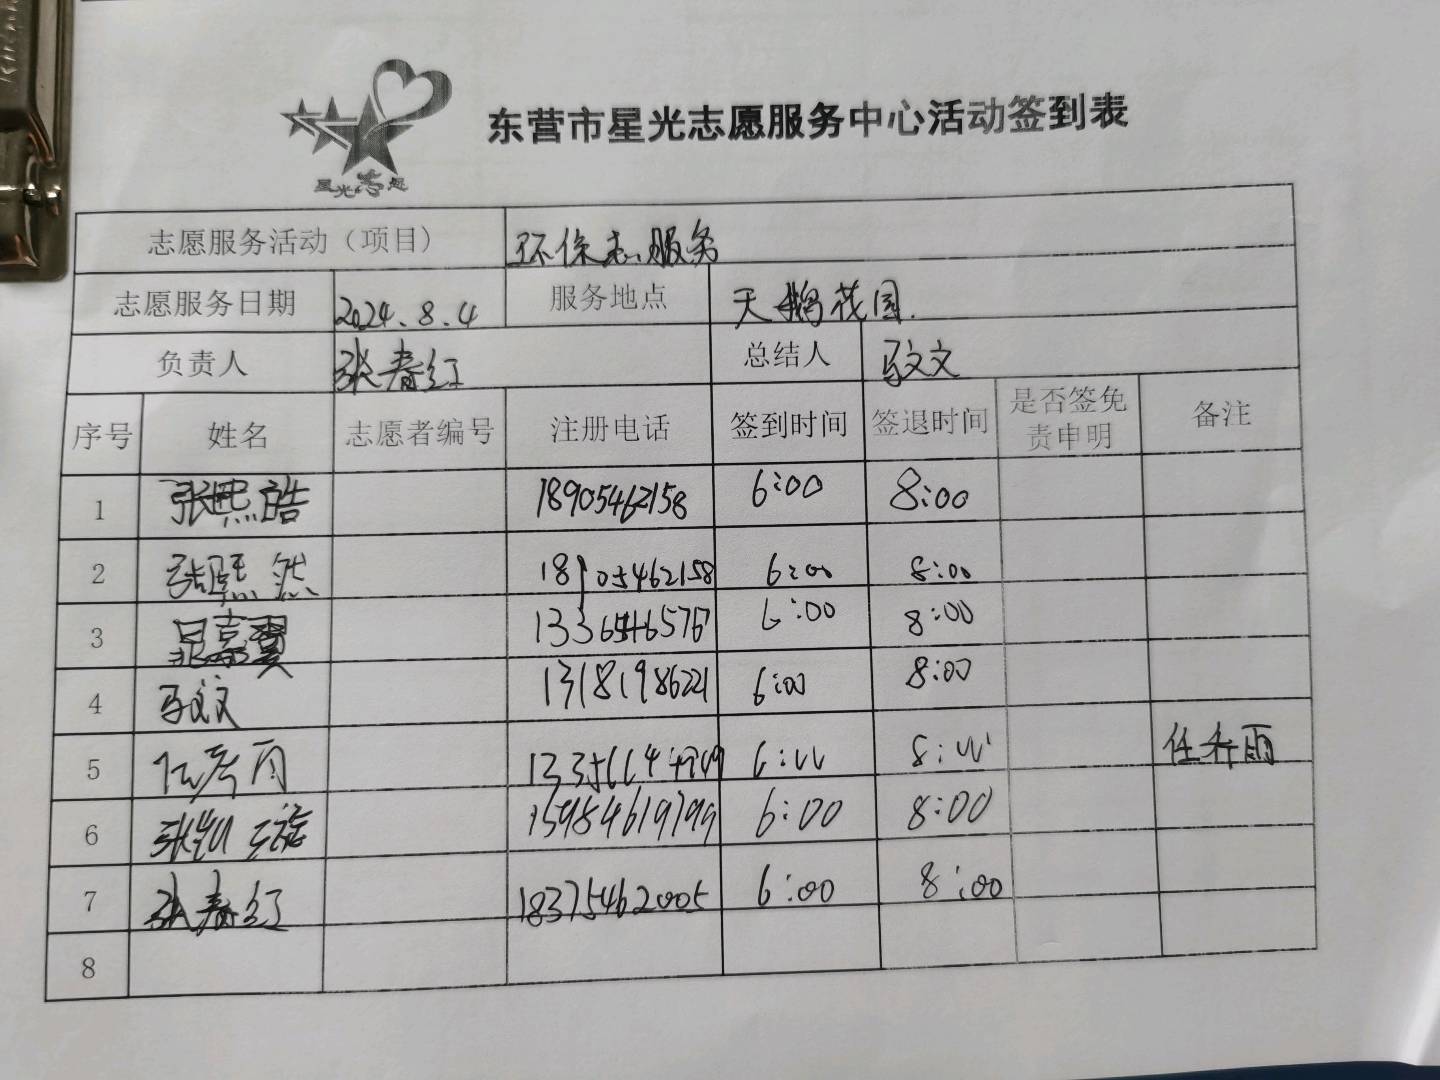 星光志愿
东营市星光志愿服务中心活动签到表
志愿服务活动（项目） 环保志服务
志愿服务日期 2024.8.4 服务地点 天鹅花园.
负责人 张春红 总结人 马文文
序号 姓名 志愿者编号 注册电话 签到时间 签退时间 是否签免责申明 备注
1 张熙皓 18905462158 6:00 8:00
2 张熙然 18905462158 6:00 8:00
3 6:00 8:00
4 马文文 13181986221 6:00 8:00
5 6:00 8:00
6 6:00 8:00
7 张春红 18375462005 6:00 8:00
8